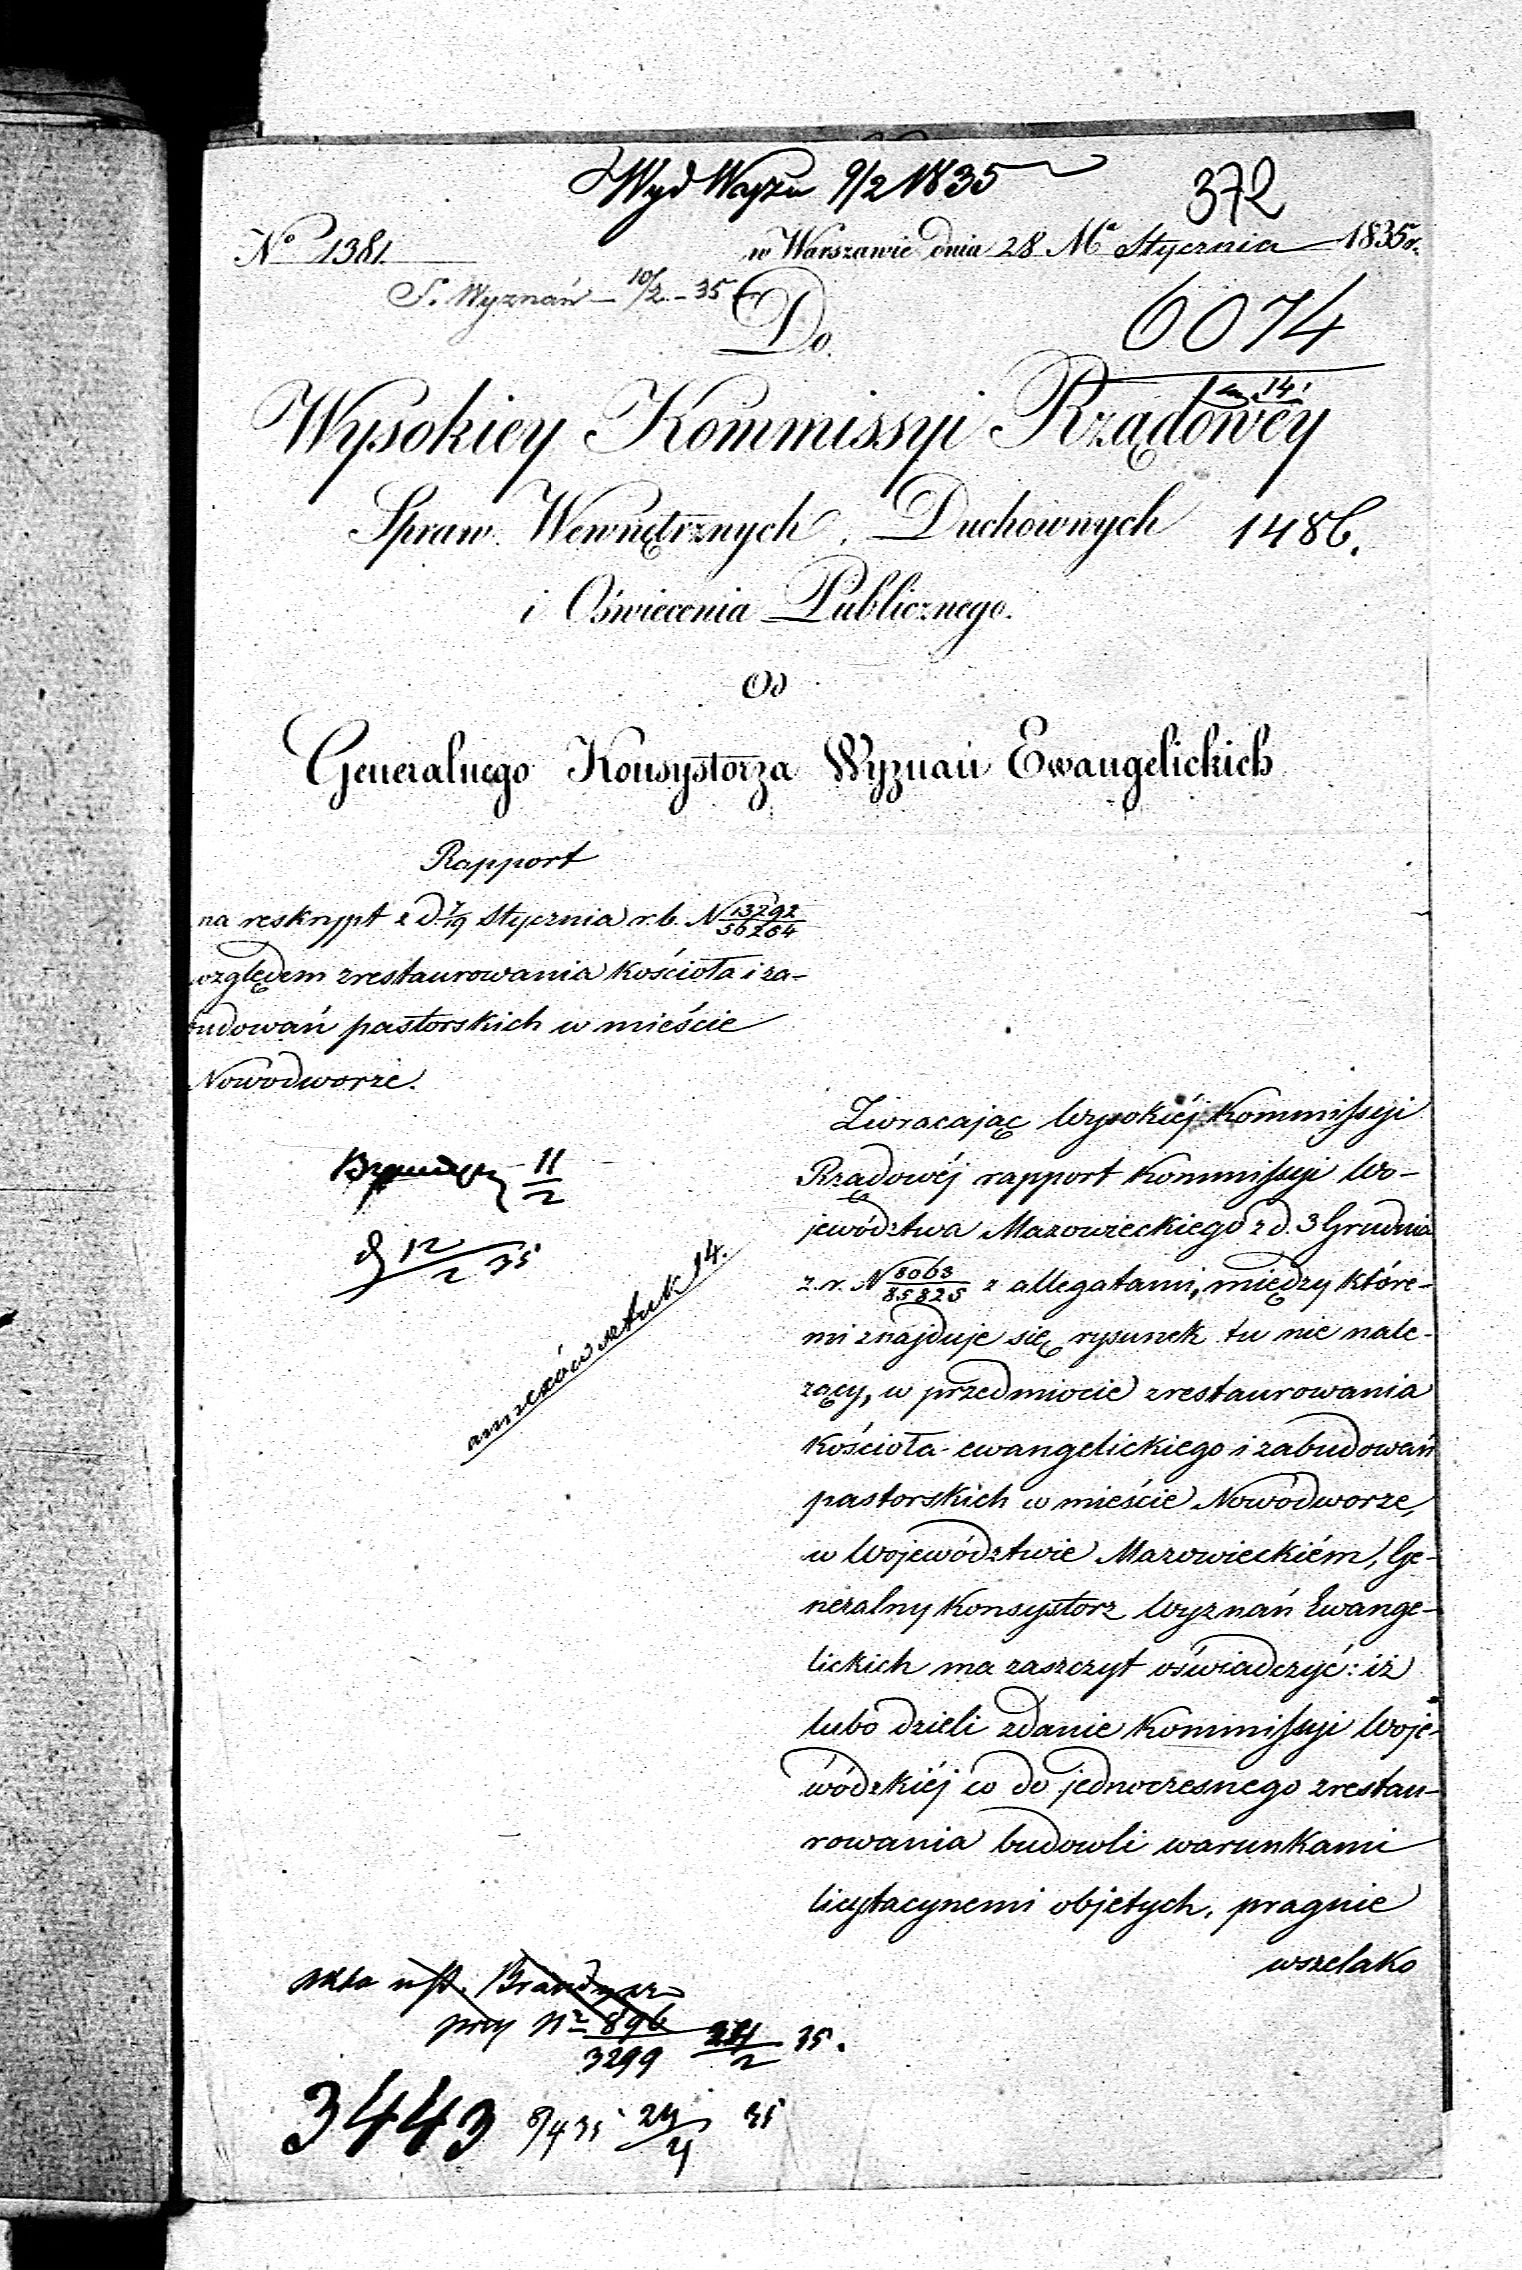 Wyd Wyzn 9/2 1835
372
No 1381.
w Warszawie dnia 28 Mca Stycznia 1835 r.
S. Wyznań 10/2 - 35
Do
6074
14
Wysokiey Kommissyi Rządowey
Spraw Wewnętrznych, Duchownych
1486.
i Oświecenia Publicznego.
Od
Generalnego Konsystorza Wyznań Ewangelickich
Rapport
na reskrypt z d. 7/19 Stycznia r. b. N 13292/56264
względem zrestaurowania Kościoła i za-
budowań pastorskich w mieście
Nowodworze.
11/2
12/2 35
annexów sztuk 14.
Zwracając Wysokiéj Kommissyi
Rządowéj rapport Kommissyi Wo-
jewództwa Mazowieckiego z d. 3 Grudnia
z. r. N 8063/85825 z allegatami, między które-
mi znajduje się rysunek tu nie nale-
zący, w przedmiocie zrestaurowania
Kościoła ewangelickiego i zabudowań
pastorskich w mieście Nowódworze,
w Województwie Mazowieckiém, Ge-
neralny Konsystorz Wyznań Ewange-
lickich ma zaszczyt oświadczyć: iż
lubo dzieli zdanie Kommissyi Woje-
wódzkiéj co do jednoczesnego zrestau-
rowania budowli warunkami
licytacynemi objetych, pragnie
wszelako
akta
przy No 896/3299 24/2 35.
3443 8/4 35 24/4 35